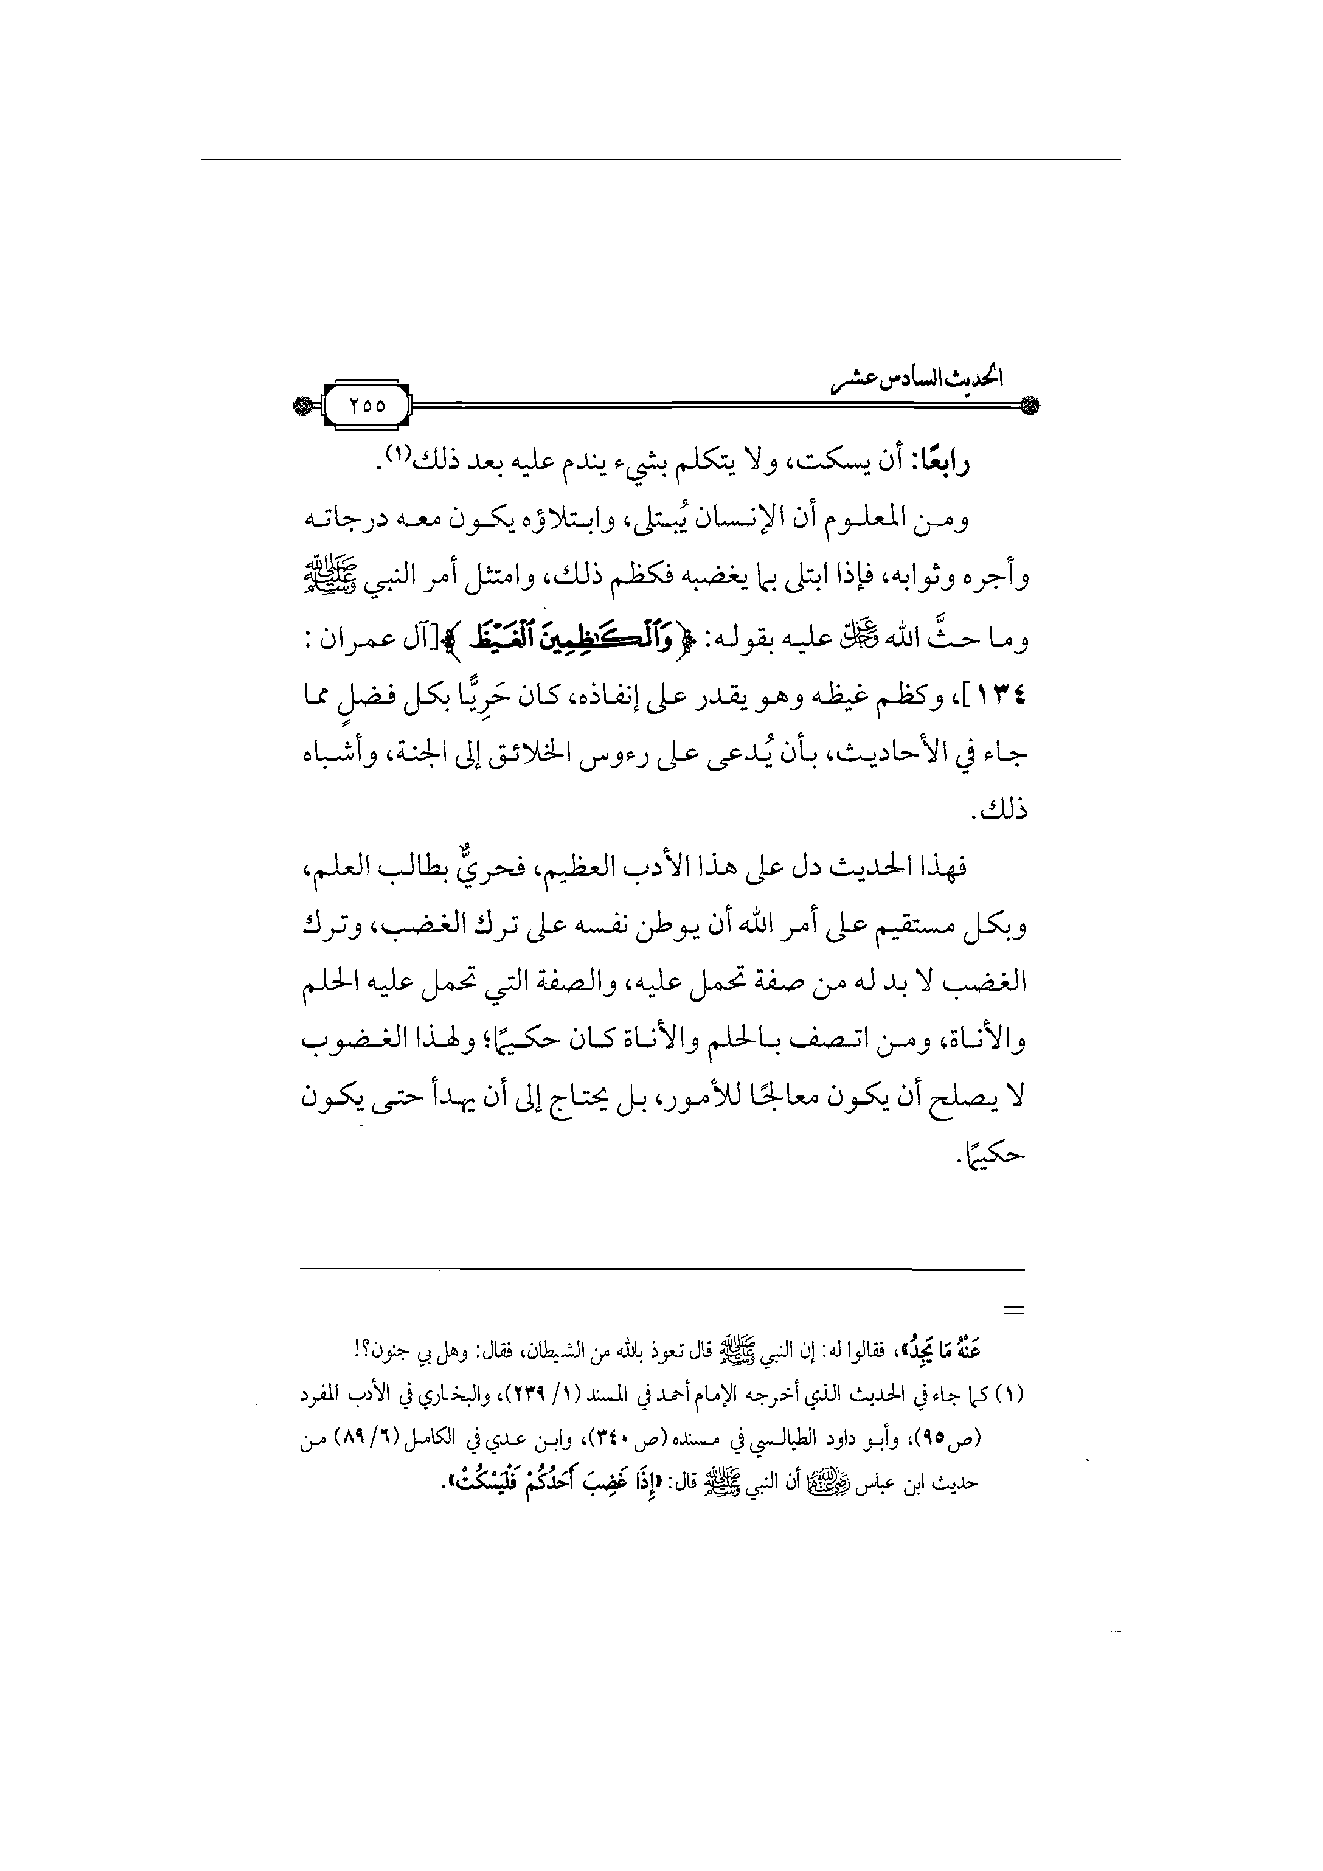 الحديث السادس عشر
٢٥٥
رابعًا: أن يسكت، ولا يتكلم بشيء يندم عليه بعد ذلك(١).
ومن المعلوم أن الإنسان يُبتلى، وابتلاؤه يكون معه درجاته
وأجره وثوابه، فإذا ابتلى بما يغضبه فكظم ذلك، وامتثل أمر النبي ﷺ
وما حثَّ الله عَزَّوَجَلَّ عليه بقوله: ﴿وَٱلْكَـٰظِمِينَ ٱلْغَيْظَ﴾[آل عمران :
١٣٤]، وكظم غيظه وهو يقدر على إنفاذه، كان حَرِيًّا بكل فضلٍ مما
جاء في الأحاديث، بأن يُدعى على رءوس الخلائق إلى الجنة، وأشباه
ذلك.
فهذا الحديث دل على هذا الأدب العظيم، فحريٌّ بطالب العلم،
وبكل مستقيم على أمر الله أن يوطن نفسه على ترك الغضب، وترك
الغضب لا بد له من صفة تحمل عليه، والصفة التي تحمل عليه الحلم
والأناة، ومن اتصف بالحلم والأناة كان حكيمًا؛ ولهذا الغضوب
لا يصلح أن يكون معالجًا للأمور، بل يحتاج إلى أن يهدأ حتى يكون
حكيمًا.
=
عَنْهُ مَا يَجِدُ»، فقالوا له: إن النبي ﷺ قال تعوذ بالله من الشيطان، فقال: وهل بي جنون؟!
(١) كما جاء في الحديث الذي أخرجه الإمام أحمد في المسند (١/ ٢٣٩)، والبخاري في الأدب المفرد
(ص٩٥)، وأبو داود الطيالسي في مسنده (ص ٣٤٠)، وابن عدي في الكامل (٦/ ٨٩) من
حديث ابن عباس رضي الله عنهما أن النبي ﷺ قال: «إِذَا غَضِبَ أَحَدُكُمْ فَلْيَسْكُتْ».